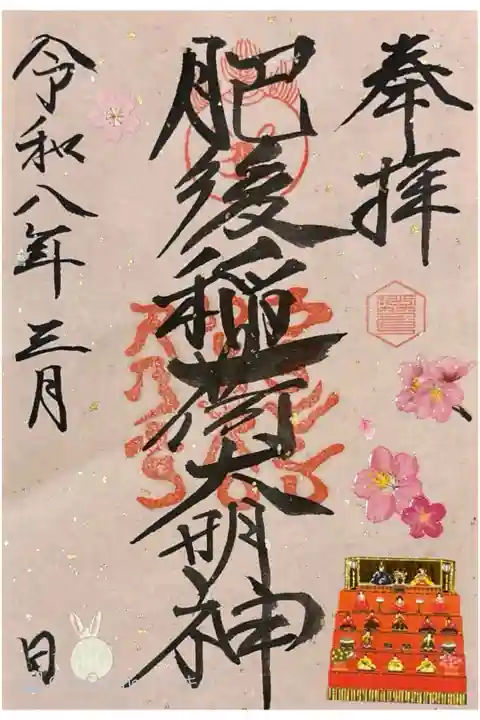 奉拝
肥後稲荷大明神
令和八年三月 日